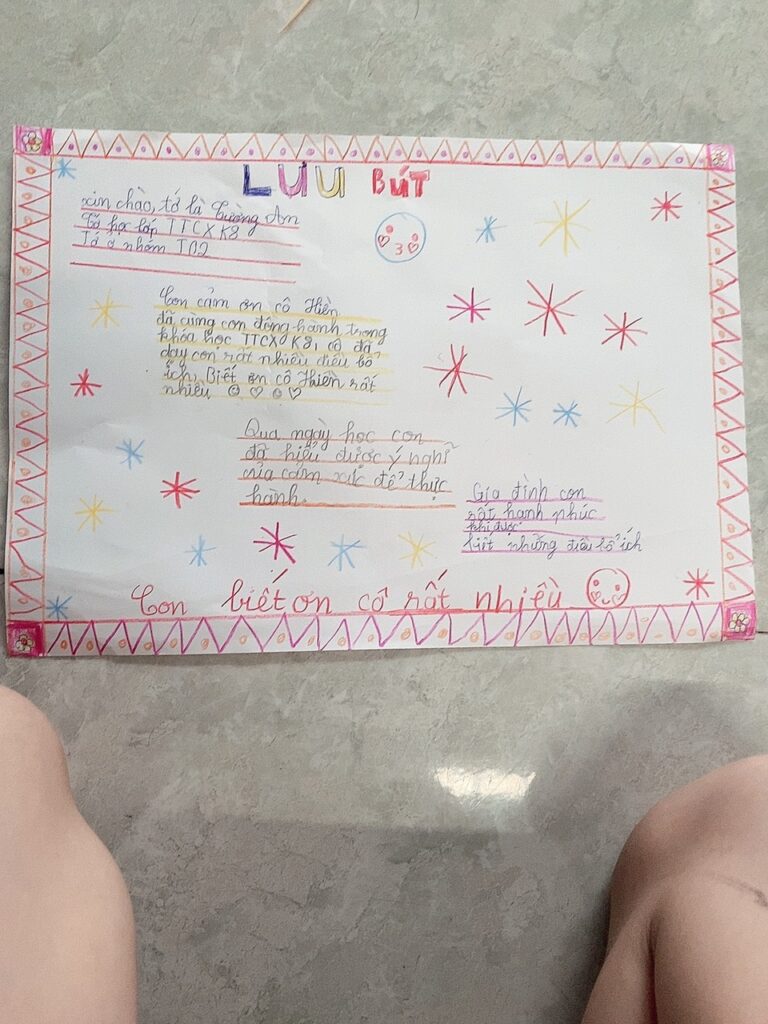 LƯU BÚT
xin chào, tớ là Cường An
Tớ học lớp TTCX K8
Tớ ở nhóm T02
Con cảm ơn cô Hiền
đã cùng con đồng hành trong
khóa học TTCX K8, cô đã
dạy con rất nhiều điều bổ
ích, Biết ơn cô Hiền rất
nhiều
Qua ngày học con
đã hiểu được ý nghĩ
của cảm xúc để thực
hành.
Gia đình con
rất hạnh phúc
khi được
biết những điều bổ ích
Con biết ơn cô rất nhiều